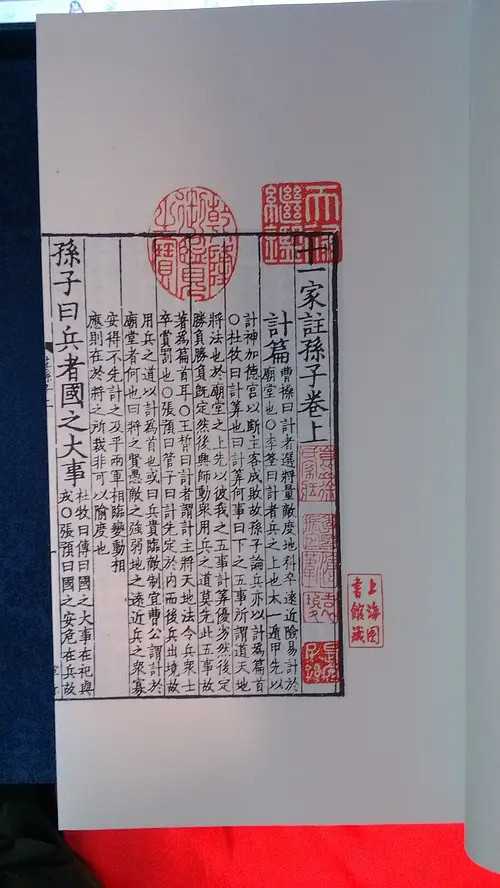 天祿繼鑑
乾隆御覽之寶
十一家註孫子卷上
計篇
曹操曰計者選將量敵度地料卒遠近險易計於
廟堂也○李筌曰計者兵之上也太一遁甲先以
計神加德宮以斷主客成敗故孫子論兵亦以計爲篇首
○杜牧曰計算也曰計算何事曰下之五事所謂道天地
將法也於廟堂之上先以彼我之五事計算優劣然後定
勝負勝負既定然後興師動衆用兵之道莫先此五事故
著爲篇首耳○王晳曰計者謂計主將天地法令兵衆士
卒賞罰也○張預曰管子曰計先定於內而後兵出境故
用兵之道以計爲首也或曰兵貴臨敵制宜曹公謂計於
廟堂者何也曰將之賢愚敵之強弱地之遠近兵之衆寡
安得不先計之及乎兩軍相臨變動相
應則在於將之所裁非可以隃度也
孫子曰兵者國之大事
杜牧曰傳曰國之大事在祀與
戎○張預曰國之安危在兵故
上海图
書館藏